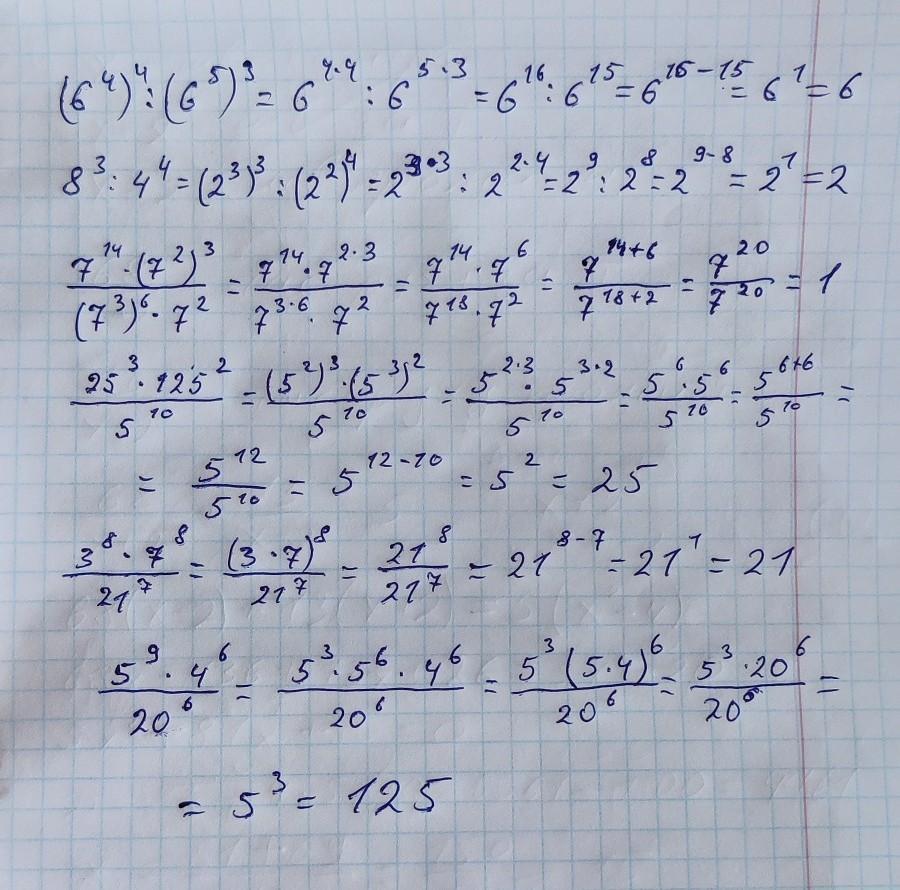 (6^4)^4 : (6^5)^3 = 6^{4·4} : 6^{5·3} = 6^{16} : 6^{15} = 6^{16-15} = 6^1 = 6
8^3 : 4^4 = (2^3)^3 : (2^2)^4 = 2^{3·3} : 2^{2·4} = 2^9 : 2^8 = 2^{9-8} = 2^1 = 2
\frac{7^{14} · (7^2)^3}{(7^3)^6 · 7^2} = \frac{7^{14} · 7^{2·3}}{7^{3·6} · 7^2} = \frac{7^{14} · 7^6}{7^{18} · 7^2} = \frac{7^{14+6}}{7^{18+2}} = \frac{7^{20}}{7^{20}} = 1
\frac{25^3 · 125^2}{5^{10}} = \frac{(5^2)^3 · (5^3)^2}{5^{10}} = \frac{5^{2·3} · 5^{3·2}}{5^{10}} = \frac{5^6 · 5^6}{5^{10}} = \frac{5^{6+6}}{5^{10}} =
= \frac{5^{12}}{5^{10}} = 5^{12-10} = 5^2 = 25
\frac{3^8 · 7^8}{21^7} = \frac{(3 · 7)^8}{21^7} = \frac{21^8}{21^7} = 21^{8-7} = 21^1 = 21
\frac{5^9 · 4^6}{20^6} = \frac{5^3 · 5^6 · 4^6}{20^6} = \frac{5^3 (5 · 4)^6}{20^6} = \frac{5^3 · 20^6}{20^6} =
= 5^3 = 125